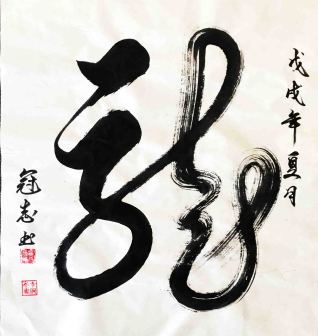 戊戌年夏月
龍
冠志书